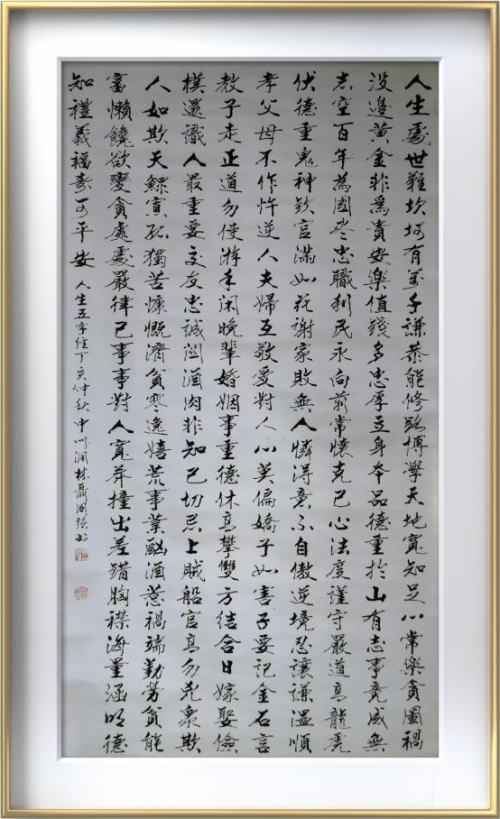 人生處世難坎坷有万千謙恭能修路博學天地寬知足心常樂貪圖禍
沒邊黃金非為貴安樂值錢多忠厚立身本品德重於山有志事竟成無
志空百年為國盡忠職利民永向前常懷克己心法度謹守嚴道高龍虎
伏德重鬼神欽官滿如花謝家敗無人憐得意不自傲逆境忍讓謙溫順
孝父母不作忤逆人夫婦互敬愛對人心莫偏嬌子如害子要記金石言
教子走正道勿使游手閑晚輩婚姻事重德休高攀雙方結合日嫁娶儉
樸還識人最重要交友忠誠関酒肉非知己切忌上賊船官高勿児衆欺
人如欺天鰥寡孤獨苦慷慨濟貧寒逸嬉荒事業酗酒惹禍端勤勞貧能
富懶饒欲變貪處處嚴律己事事對人寬莽撞出差錯胸襟海量涵明德
知禮義福壽可平安 人生五字經丁亥仲秋中州